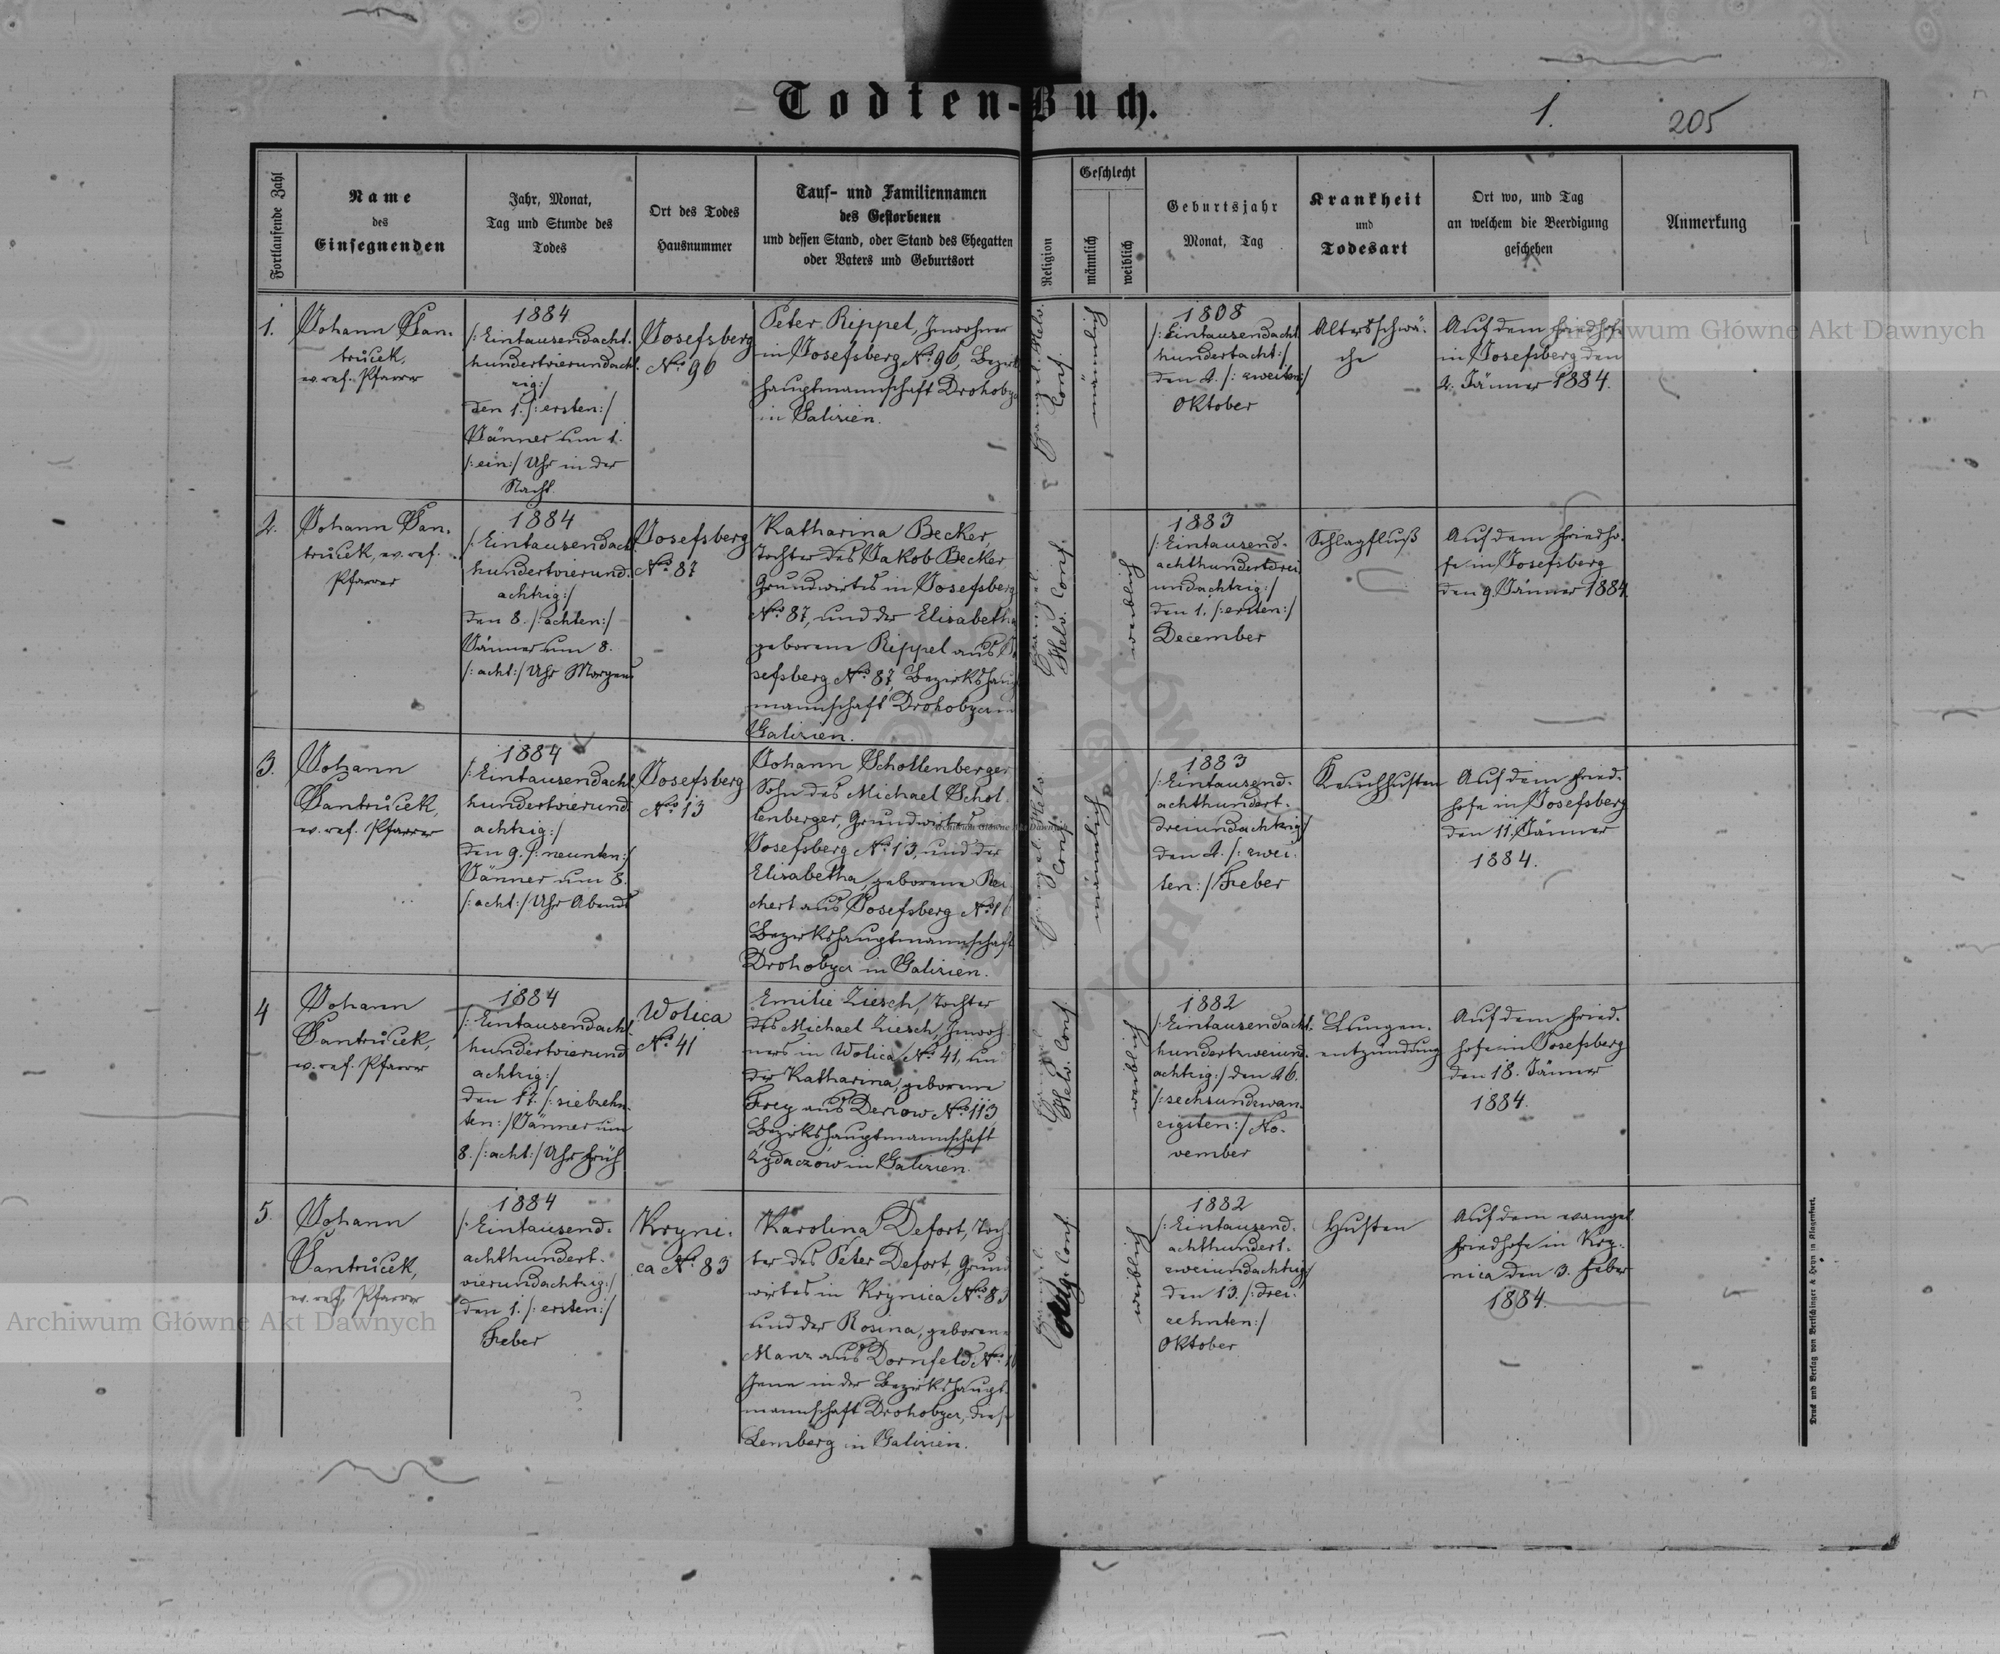 Todten-Buch.
1.
205
Fortlaufende Zahl
Name
des
Einsegnenden
Jahr, Monat,
Tag und Stunde des
Todes
Ort des Todes
Hausnummer
Tauf- und Familiennamen
des Gestorbenen
und dessen Stand, oder Stand des Ehegatten
oder Vaters und Geburtsort
Religion
Geschlecht
männlich
weiblich
Geburtsjahr
Monat, Tag
Krankheit
und
Todesart
Ort wo, und Tag
an welchem die Beerdigung
geschehen
Anmerkung
1.
Johann San-
trůček,
ev. ref. Pfarrer
1884
/:Eintausendacht-
hundertvierundacht-
zig:/
den 1. /:ersten:/
Jänner um 1.
/:ein:/ Uhr in der
Nacht.
Josefsberg
No. 96
Peter Rippel, Inwohner
in Josefsberg No. 96, Bezirks
hauptmannschaft Drohobycz
in Galizien.
Evangel. Helv.
Conf.
männlich
1808
/:Eintausendacht
hundertacht:/
den 2. /:zweiten:/
Oktober
Altersschwä-
che
Auf dem Friedhofe
in Josefsberg den
2. Jänner 1884.
2.
Johann San-
trůček, ev. ref.
Pfarrer
1884
/:Eintausendacht
hundertvierund-
achtzig:/
den 8. /:achten:/
Jänner um 8.
/:acht:/ Uhr Morgens
Josefsberg
No. 87
Katharina Becker,
Tochter des Jakob Becker
Grundwirtes in Josefsberg
No. 87, und der Elisabetha
geborene Rippel aus Jo
sefsberg No. 87, Bezirkshaupt
mannschaft Drohobycz in
Galizien.
Evangel.
Helv. Conf.
weiblich
1883
/:Eintausend-
achthundertdrei
undachtzig:/
den 1. /:ersten:/
December
Schlagfluß
Auf dem Friedho-
fe in Josefsberg
den 9. Jänner 1884.
3.
Johann
Santrůček,
ev. ref. Pfarrer
1884
/:Eintausendacht-
hundertvierund
achtzig:/
den 9. /:neunten:/
Jänner um 8.
/:acht:/ Uhr Abends
Josefsberg
No. 13
Johann Schollenberger
Sohn des Michael Schol
lenberger, Grundwirtes
Josefsberg No. 13, und der
Elisabetha, geborene Rei
chert aus Josefsberg No.
Bezirkshauptmannschaft
Drohobycz in Galizien.
Evangel. Helv.
Conf.
männlich
1883
/:Eintausend-
achthundert-
dreiundachtzig:/
den 2. /:zwei-
ten:/ Feber
Keuchhusten
Auf dem Fried-
hofe in Josefsberg
den 11. Jänner
1884.
4
Johann
Santrůček,
ev. ref. Pfarrer
1884
/:Eintausendacht-
hundertvierund
achtzig:/
den 17. /:siebzehn-
ten:/ Jänner um
8. /:acht:/ Uhr früh
Wolica
No. 41
Emilie Ziesch, Tochter
des Michael Ziesch, Inwoh-
ners in Wolica No. 41, un
der Katharina, geborene
Frey aus Derzow No. 113,
Bezirkshauptmannschaft
Żydaczów in Galizien.
Evangel.
Helv. Conf.
weiblich
1882
/:Eintausendacht-
hundertzweiund-
achtzig:/ den 26.
/:sechsundzwan-
zigsten:/ No-
vember
Lungen-
entzündung
Auf dem Fried-
hofe in Josefsberg
den 18. Jänner
1884.
5.
Johann
Santrůček,
ev. ref. Pfarrer
1884
/:Eintausend-
achthundert-
vierundachtzig:/
den 1. /:ersten:/
Feber
Kryni-
ca No. 83
Karolina Defort, Toch-
ter des Peter Defort, Grund
wirtes in Krynica No. 83
und der Rosina, geborene
Manz aus Dornfeld No.
Jene in der Bezirkshaupt-
mannschaft Drohobycz, diese
Lemberg in Galizien.
Evangel.
Augs. Conf.
weiblich
1882
/:Eintausend-
achthundert-
zweiundachtzig:/
den 13. /:drei-
zehnten:/
Oktober
Husten
Auf dem evangel.
Friedhofe in Kry-
nica den 3. Feber
1884.
Druck und Verlag von Bertschinger & Heyn in Klagenfurt.
Archiwum Główne Akt Dawnych
Archiwum Główne Akt Dawnych
Archiwum Główne Akt Dawnych